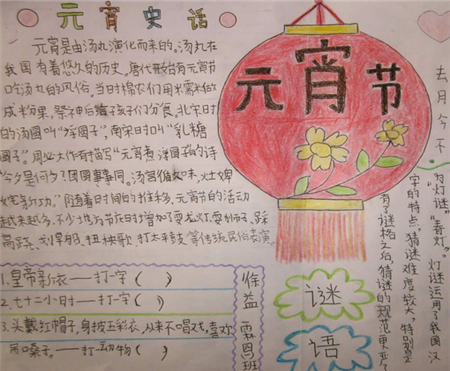 元宵史话
元宵是由汤丸演化而来的,汤丸在
我国有着悠久的历史,唐代就有元宵节
吃汤丸的风俗,当时棉农们用米
成粉果,祭神后孩子们分食,北宋时
的汤圆叫“浮圆子”,南宋时叫“乳糖
圆子”。周必大作有描写“元宵煮浮圆子的诗
“今夕是何夕?团圆事事同。汤官
”随着时间的推移,元宵节的活动
越来越多,不少地方节庆时增加了耍龙灯、耍狮子、踩
高跷、划旱船、扭秧歌、打太平鼓等传统民俗表演。
1.皇帝新衣——打一字( )
2.七十二小时——打一字( )
3.头戴红帽子,身披五彩衣,从来不唱戏,喜欢
吊嗓子。——打一动物( )
徐益
班
元宵节
谜
语
去月今不
为灯谜”“春灯”。灯谜运用了我国汉
字的特点。猜谜难度较大,特别是
有了谜格之后,猜谜的规范更严了